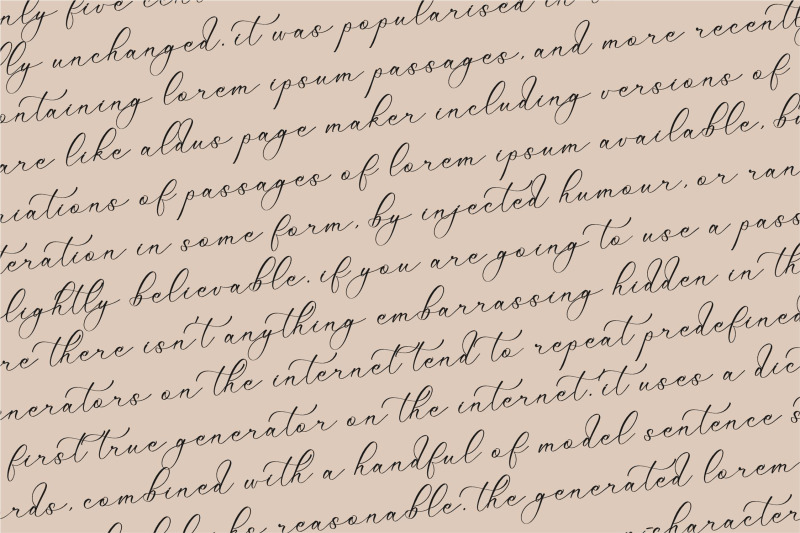 nly five cen
lly unchanged. it was popularised in
ontaining lorem ipsum passages, and more recently
are like aldus page maker including versions of
riations of passages of lorem ipsum available, bu
teration in some form, by injected humour, or ran
lightly believable. if you are going to use a pass
re there isn't anything embarrassing hidden in th
enerators on the internet tend to repeat predefined
first true generator on the internet. it uses a dic
rds, combined with a handful of model sentence s
looks reasonable. the generated lorem
characteri